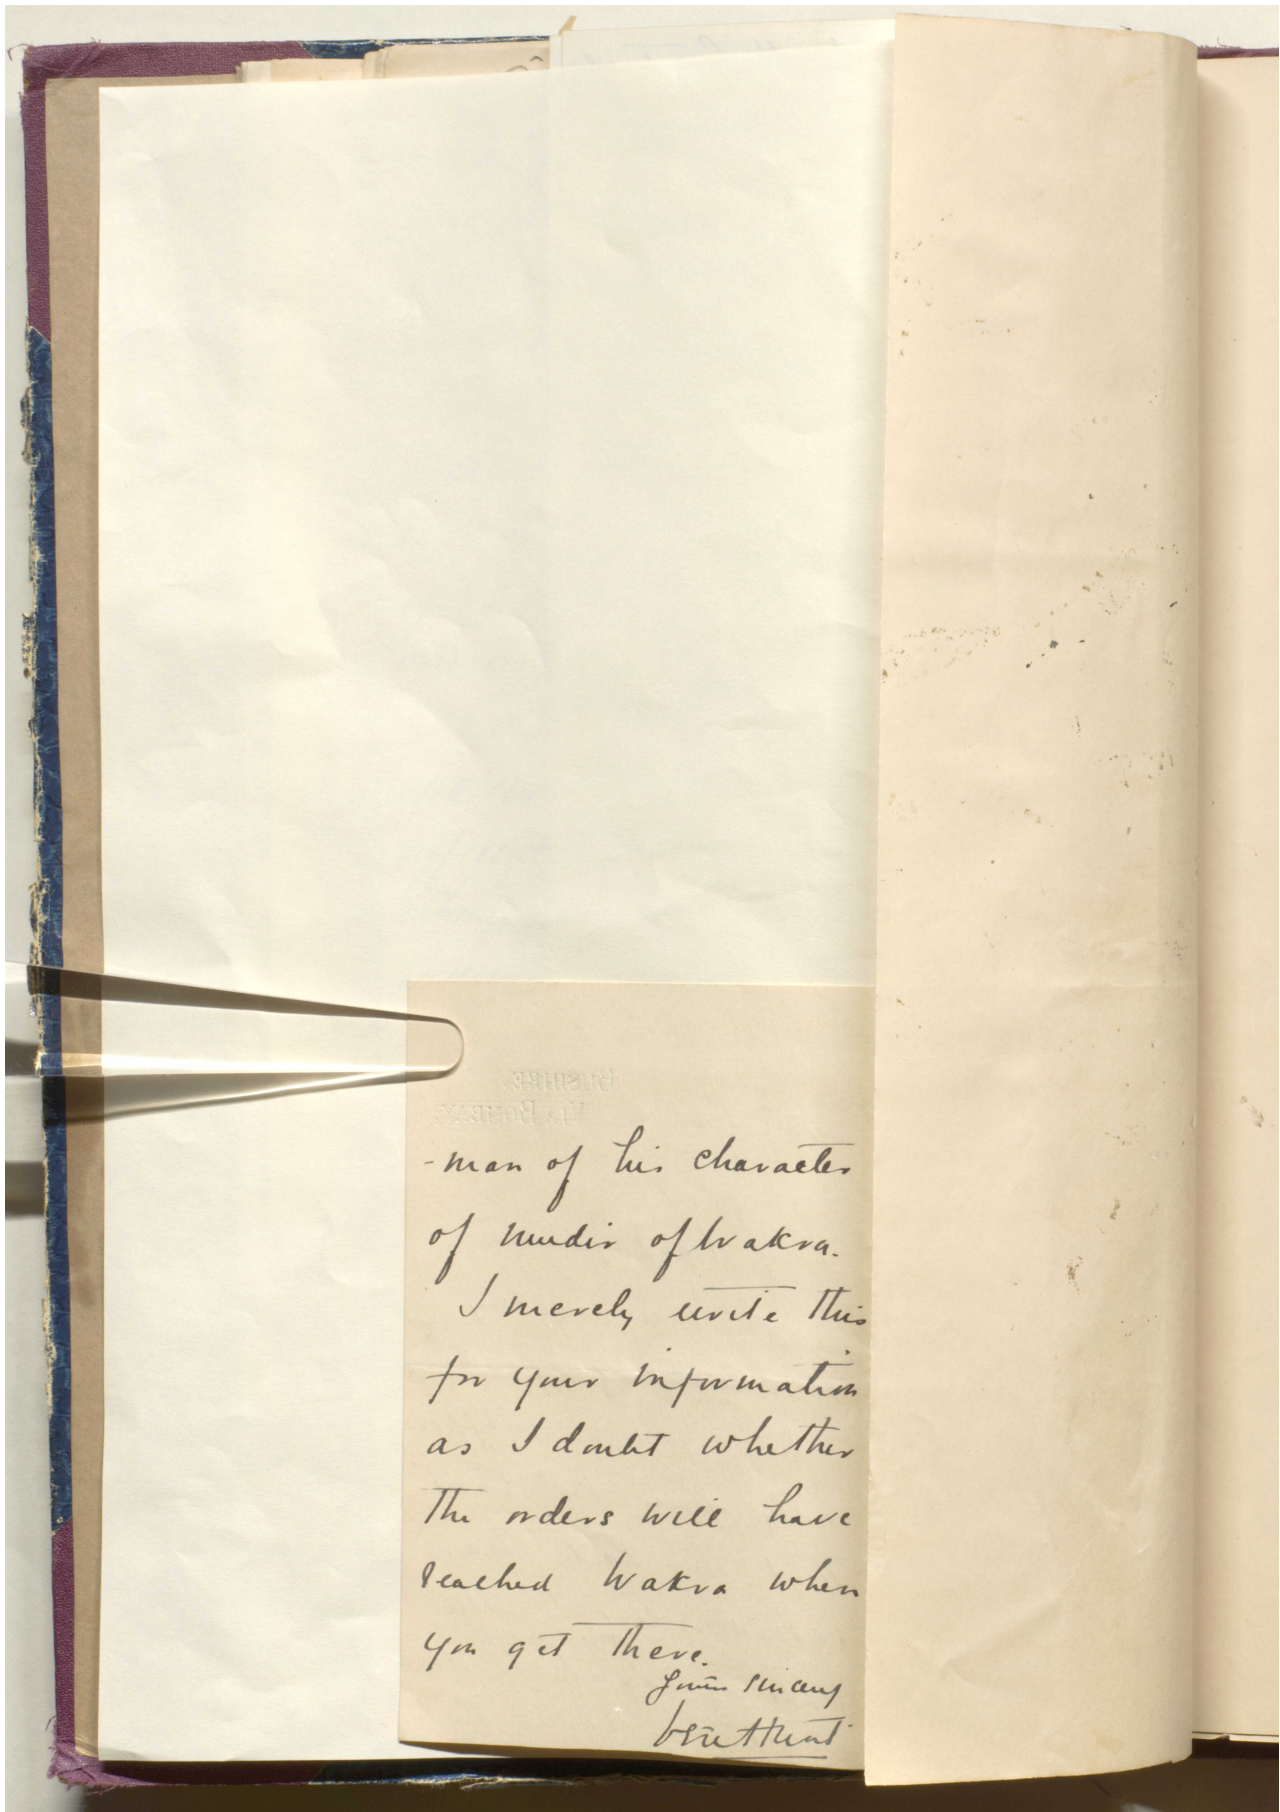 BUSHIRE.
VIA BOMBAY.
-man of his character
of mudir of Wakra.
I merely write this
for your information
as I doubt whether
the orders will have
reached Wakra when
you get there.
Yours sincerely